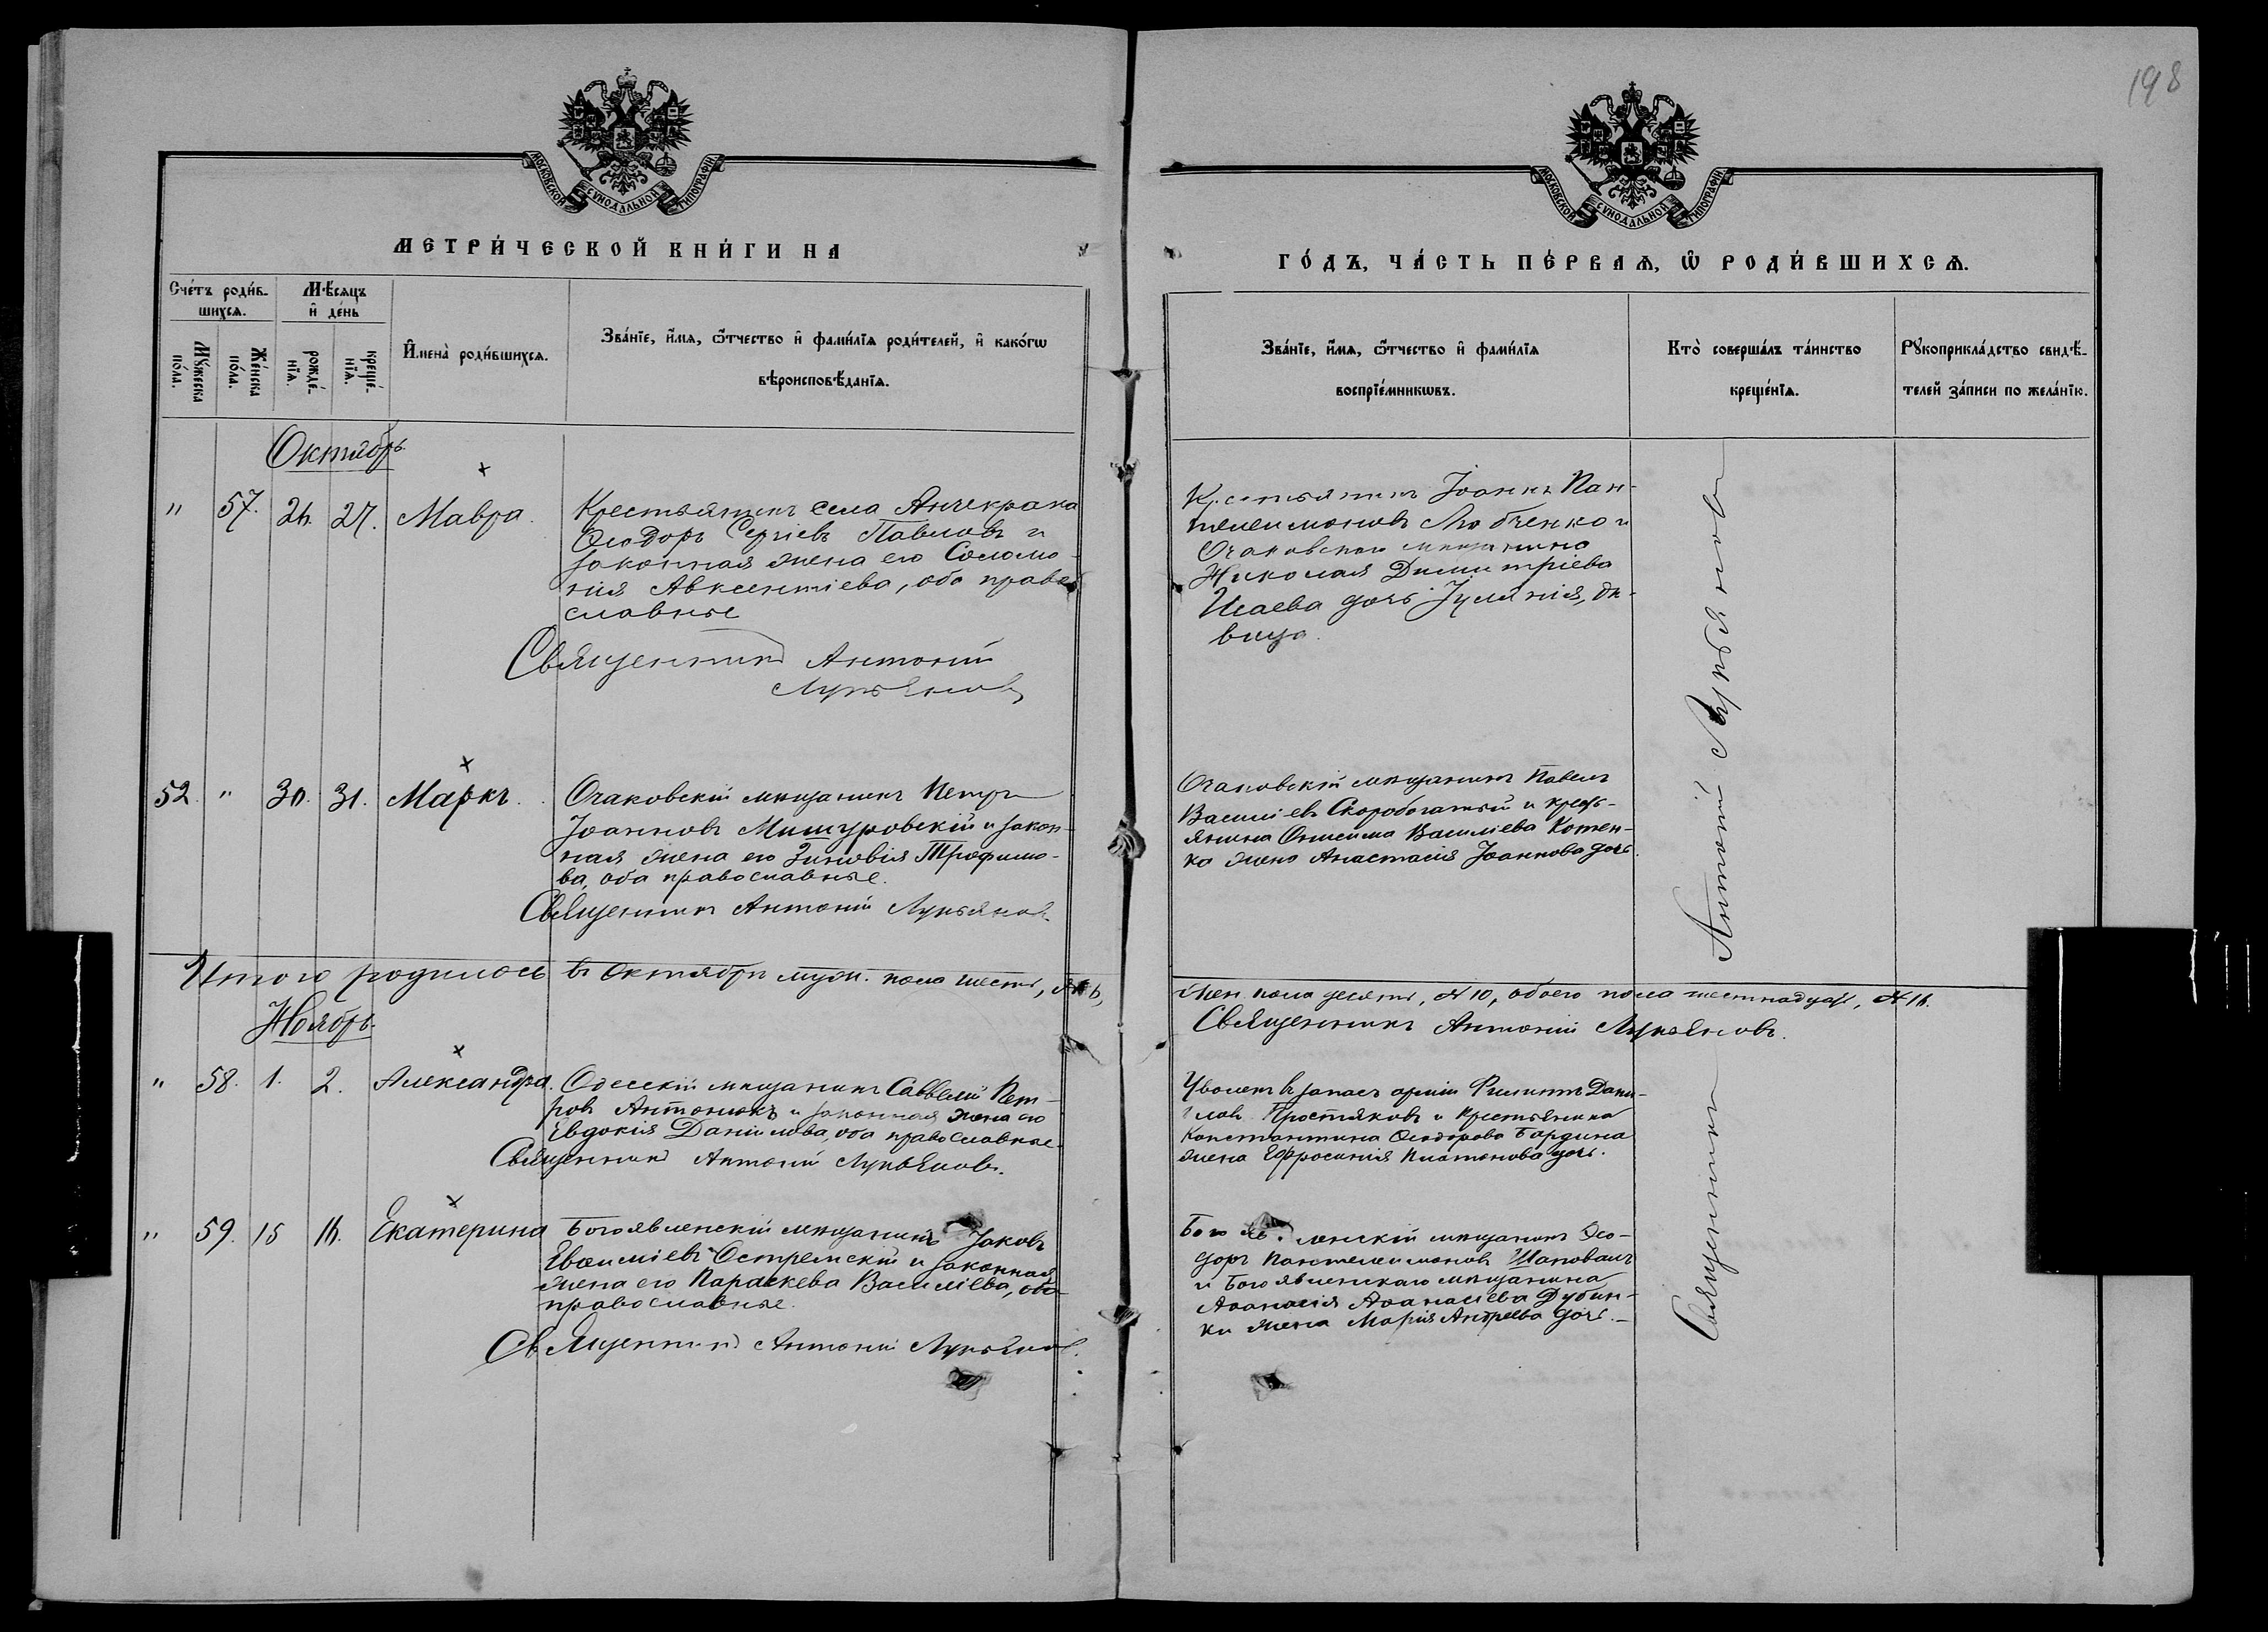 198
МОСКОВСКОЙ СѴНОДАЛЬНОЙ ТИПОГРАФІИ
МОСКОВСКОЙ СѴНОДАЛЬНОЙ ТИПОГРАФІИ
МЕТРИ́ЧЕСКОЙ КНИ́ГИ НА
ГО́ДЪ, ЧА́СТЬ ПЕ́РВАѦ, Ѡ҆ РОДИ́ВШИХСѦ.
Счéтъ роди́в-
шихсѧ.
Мѣ́сяцъ
и҆ дéнь
Мꙋ́жеска
пóла.
Же́нска
пóла.
рождé-
нїѧ.
крещé-
нїѧ.
И҆мена̀ роди́вшихсѧ.
Зва́нїе, и҆́мѧ, ѻ҆́тчество и҆ фами́лїѧ роди́телей, и҆ како́гѡ
вѣроисповѣ́данїѧ.
Зва́нїе, и҆́мѧ, ѻ҆́тчество и҆ фами́лїѧ
воспрїе́мникѡвъ.
Кто̀ соверша́лъ та́инство
креще́нїѧ.
Рꙋкоприкла́дство свидѣ́-
телей за́писи по жела́нїю.
Октябрь.
" 57. 26. 27. Мавра.
Крестьянинъ села Анчекрака
Ѳеодоръ Сергіевъ Павловъ и
законная жена его Соломо-
нія Авксентіева, оба право
славные
Священникъ Антоній
Лукьяновъ
Крестьянинъ Іоаннъ Пан-
телеимоновъ Любченко и
Очаковскаго мѣщанина
Николая Димитріева
Исаева дочь Іуліанія, дѣ-
вица.
52. " 30. 31. Маркъ.
Очаковскій мѣщанинъ Петръ
Іоанновъ Мишуровскій и закон-
ная жена его Зиновія Трофимо-
ва, оба православные.
Священникъ Антоній Лукьяновъ.
Очаковскій мѣщанинъ Павелъ
Василіевъ Скоробогатый и кресть-
янина Онисима Василіева Котен-
ка жена Анастасія Іоаннова дочь.
Итого родилось въ Октябрѣ муж. пола шесть, № 6,
жен. пола десять, № 10, обоего пола шестнадцать, № 16.
Священникъ Антоній Лукьяновъ.
Ноябрь.
" 58. 1. 2. Александра.
Одесскій мѣщанинъ Савелій Пет-
ровъ Антонюкъ и законная жена его
Евдокія Даніилова, оба православные.
Священникъ Антоній Лукьяновъ.
Уволенъ въ запасъ арміи Филиппъ Дані-
иловъ Простяковъ и крестьянина
Константина Ѳеодорова Бардина
жена Ефросинія Платонова дочь.
" 59. 15 16. Екатерина
Богоявленскій мѣщанинъ Іаковъ
Евѳиміевъ Остремскій и законная
жена его Параскева Василіева, оба
православные.
Священникъ Антоній Лукьяновъ.
Богоявленскій мѣщанинъ Ѳео-
доръ Пантелеимоновъ Шаповалъ
и Богоявленскаго мѣщанина
Аѳанасія Аѳанасіева Дубин-
ки жена Марія Андреева дочь.
Священникъ Антоній Лукьяновъ